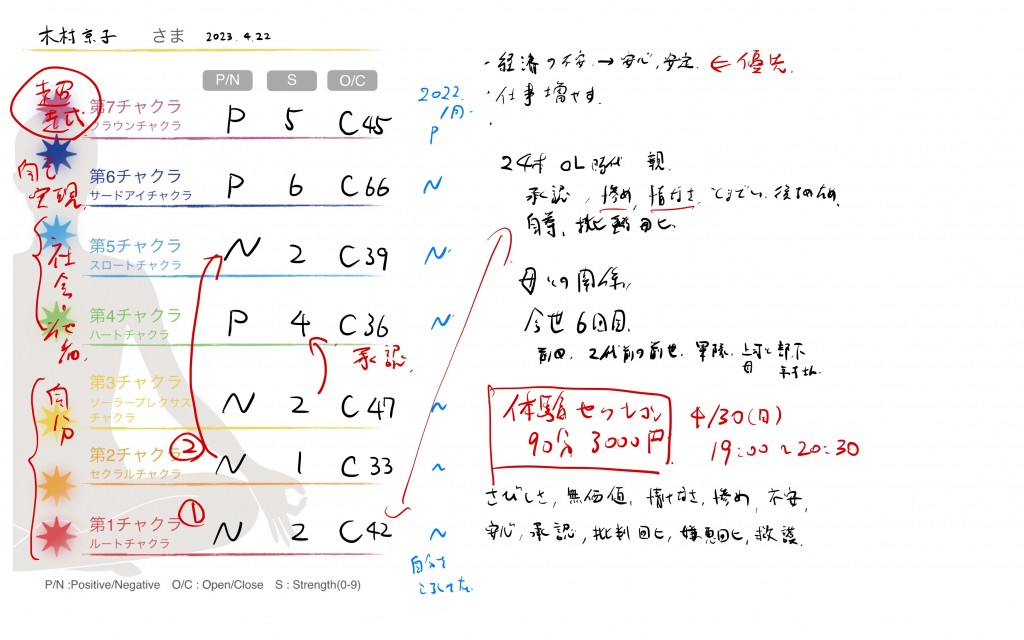 木村京子 さま 2023.4.22
P/N S O/C
2022.
1月.
超
意式
第7チャクラ P 5 C45 P
クラウンチャクラ
自己
実現
第6チャクラ P 6 C66 N
サードアイチャクラ
第5チャクラ N 2 C39 N
スロートチャクラ
社会・他者
第4チャクラ P 4 C36 N
ハートチャクラ
承認
自分
第3チャクラ N 2 C47 N
ソーラープレクサス
チャクラ
②
第2チャクラ N 1 C33 N
セクラルチャクラ
①
第1チャクラ N 2 C42 N
ルートチャクラ
自分を
ころしてた
P/N :Positive/Negative O/C : Open/Close S : Strength(0-9)
・経済の不安→安心,安定. ← 優先.
・仕事増やす.
・
24才 OL時代 親.
承認, 惨め, 情なさ,
自尊, 批判回ヒ
母との関係,
今世6回目.
前回, 2代前の前世. 軍隊. 上司と部下
母
体験セッション
90分 3000円
4/30(日)
19:00~20:30
さびしさ, 無価値, 情なさ, 惨め, 不安,
安心, 承認, 批判回ヒ, 嫌悪回ヒ, 救護.